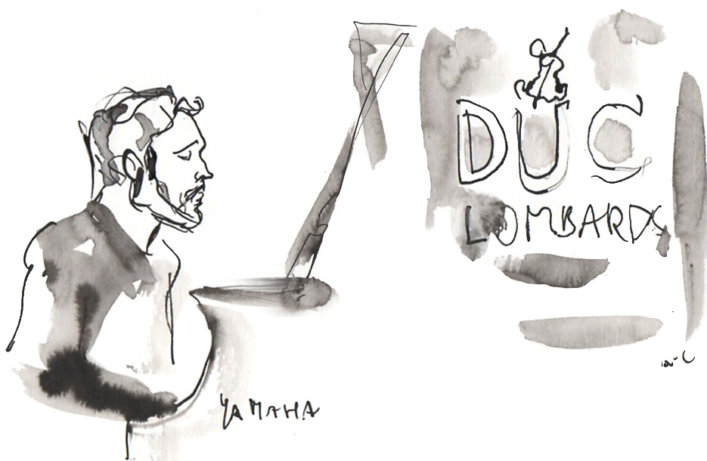 DUC
LOMBARDS
YAMAHA